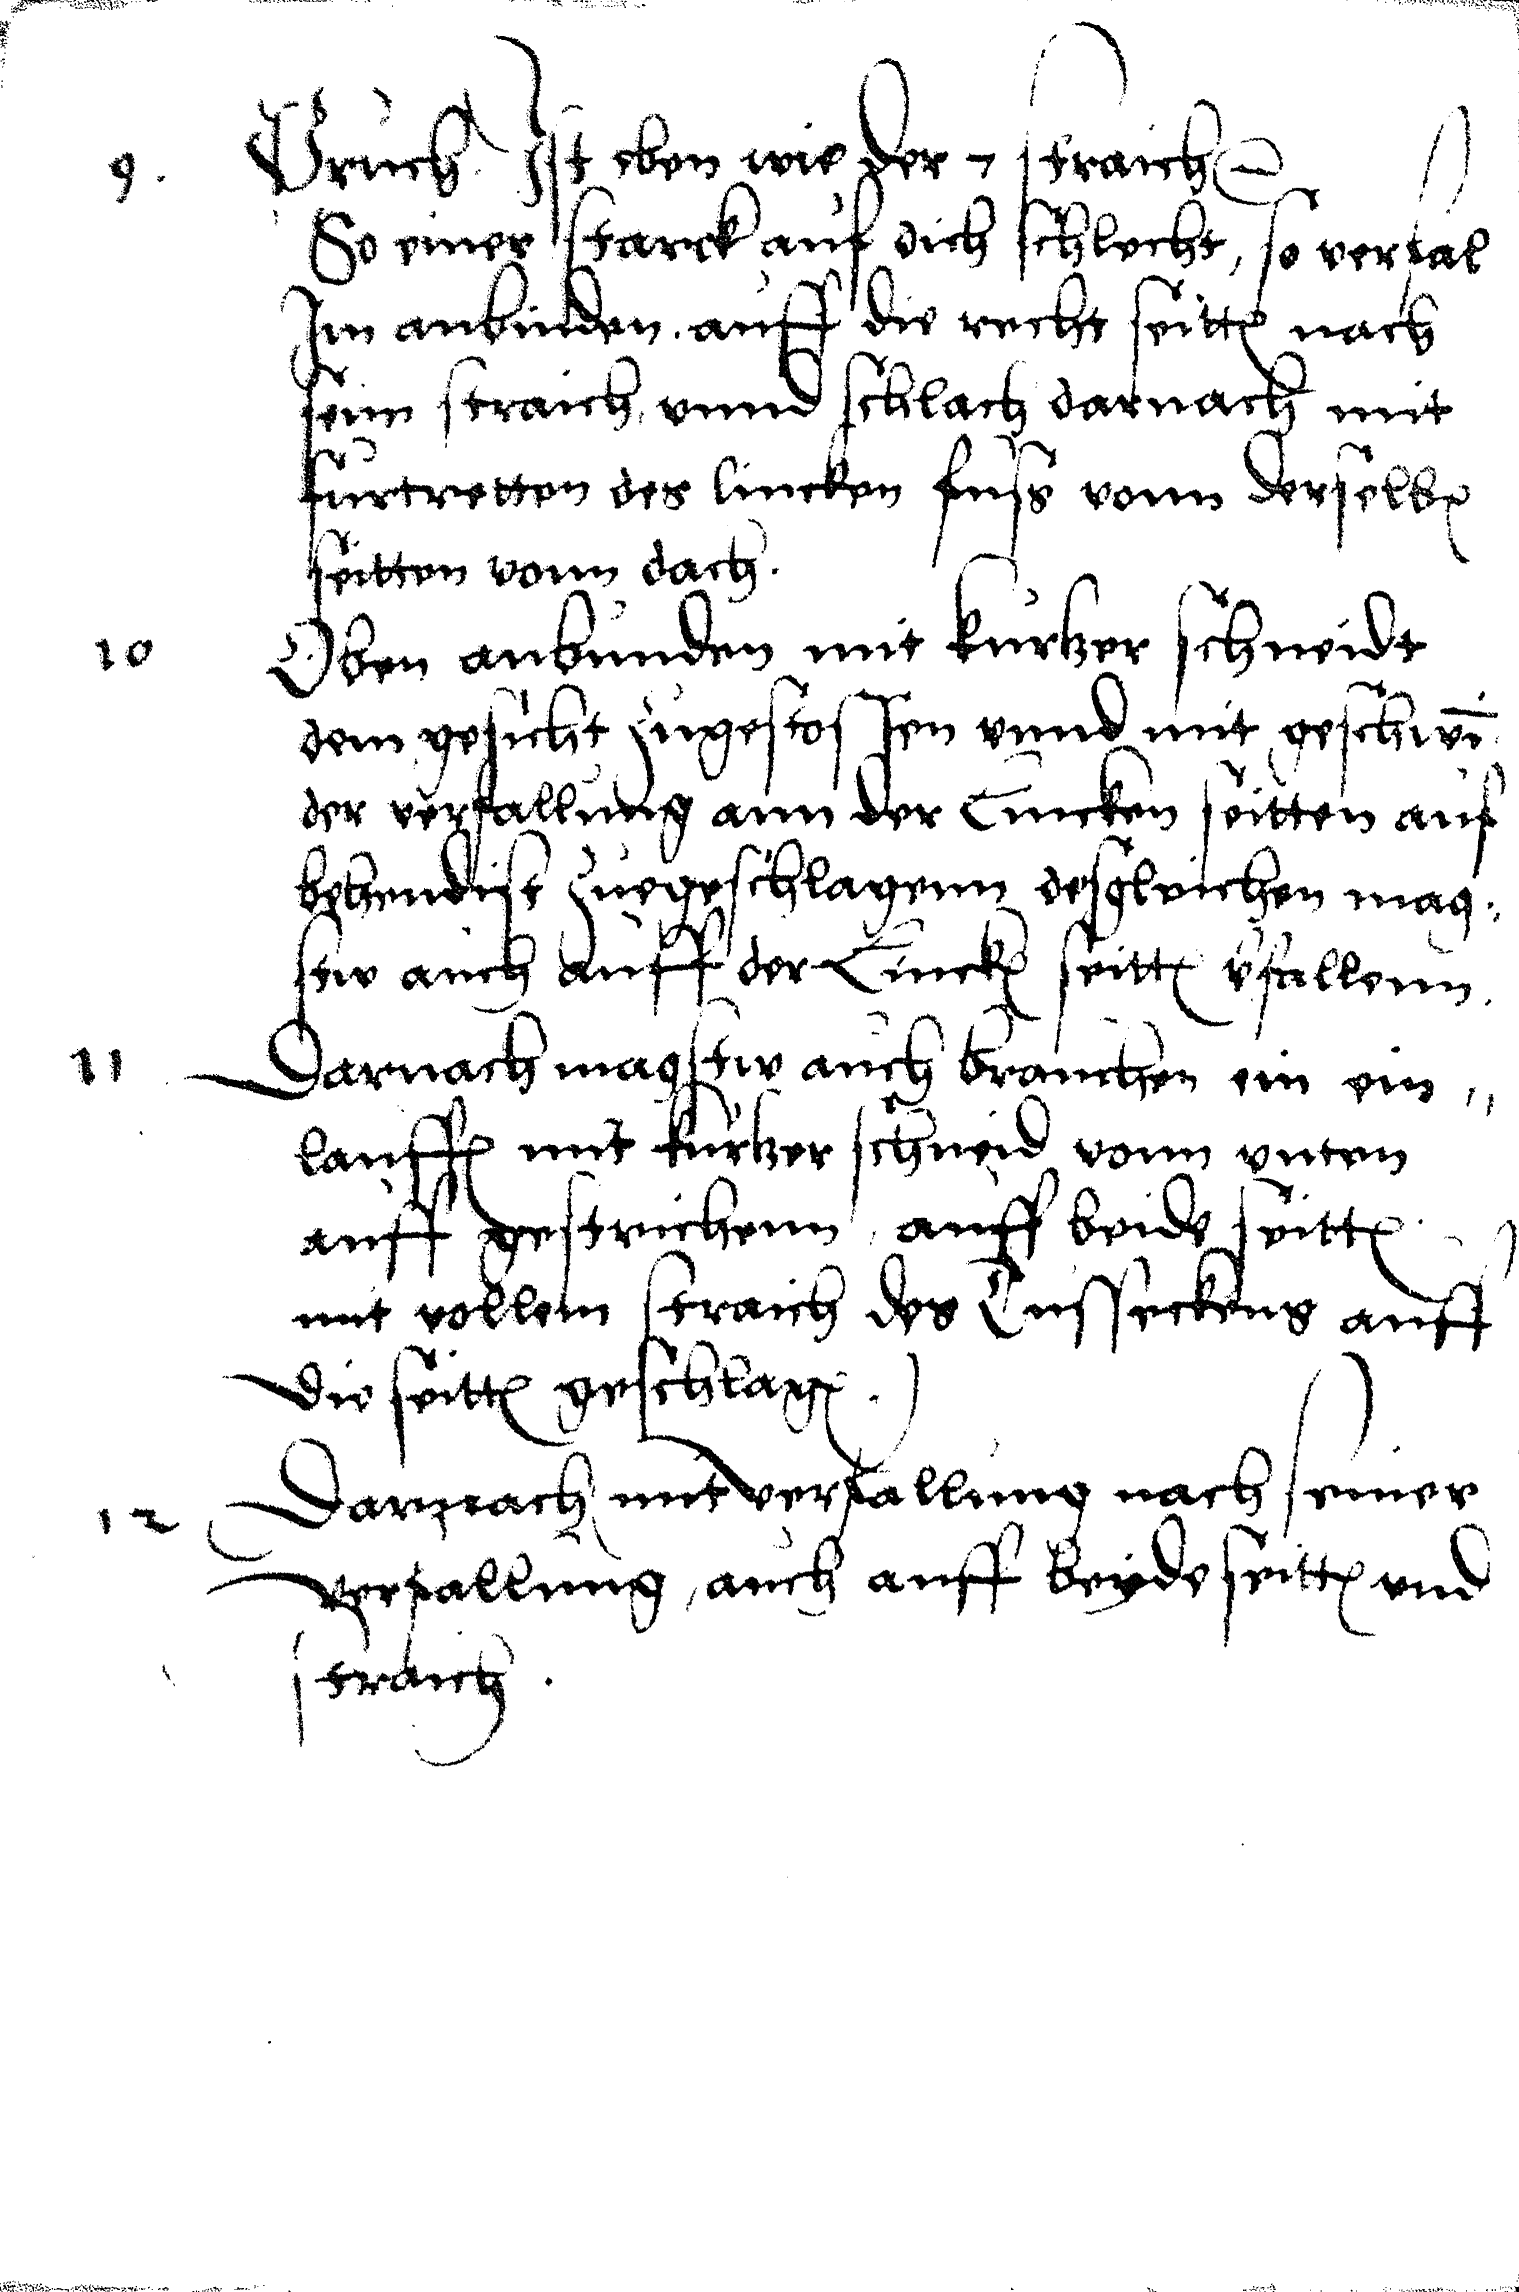 9. Bruch. Ist eben wie der 7 straich
So einer starck auf dich schlecht, so verfal
Im anbinden. auff die recht seitt nach
seim straich, vnnd schlach darnach mit
furtretten des lincken fuss vonn derselb
seitten vonn dach.
10 Oben anbunden mit kurtzer schneidt
dem gesicht zugestossen vnnd mit geschwi
der verfallung ann der Lincken seitten auf
behendist zuegeschlagenn desgleichen mag
stw auch auff der Linck seitt vfallenn.
11 Darnach magstw auch brauchen ein ein"
lauff mit kurtzer schneid vonn vnten
auff gestrichenn, auff beide seitt
mit vollem straich des auff
die seitt geschlag.
12 Darnach mit verfallung nach seiner
verfallung, auch auff beyde seitt vnd
straich.